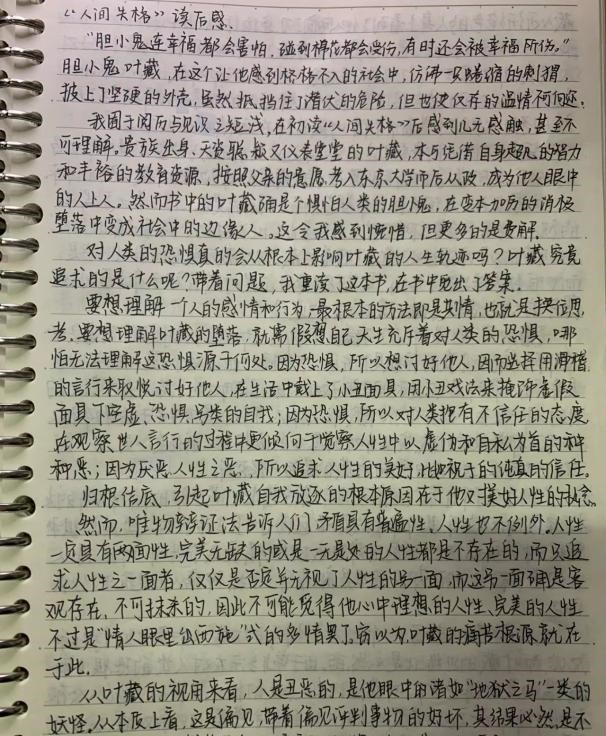 《人间失格》读后感.
“胆小鬼连幸福都会害怕, 碰到棉花都会受伤, 有时还会被幸福所伤。”
胆小鬼叶藏, 在这个让他感到格格不入的社会中, 仿佛一只蜷缩的刺猬,
披上了坚硬的外壳, 虽然抵挡住了潜伏的危险, 但也使仅存的温情何何还.
我囿于阅历与见识之短浅, 在初读“人间失格”后感到几无感触, 甚至不
可理解。贵族出身、天资聪敏又仪表堂堂的叶藏, 本与凭借自身超凡的智力
和丰裕的教育资源, 按照父亲的意愿, 考入东京大学而后从政, 成为他人眼中
的人上人。然而书中的叶藏确是个惧怕人类的胆小鬼, 在变本加厉的消极
堕落中变成社会中的边缘人。这令我感到惋惜, 但更多的是费解.
对人类的恐惧真的会从根本上影响叶藏的人生轨迹吗? 叶藏究竟
追求的是什么呢? 带着问题, 我重读了这本书, 在书中觅出了答案.
要想理解一个人的感情和行为, 最根本的方法即是共情, 也就是换位思
考. 要想理解叶藏的堕落, 就需假想自己天生充斥着对人类的恐惧, 哪
怕无法理解这恐惧源于何处。因为恐惧, 所以想讨好他人, 因而选择用滑稽
的言行来取悦讨好他人, 在生活中戴上了小丑面具, 用小丑戏法来掩饰虚假
面具下空虚、恐惧、另类的自我; 因为恐惧, 所以对人类抱有不信任的态度,
在观察世人言行的过程中更倾向于觉察人性中以虚伪和自私为首的种
种恶; 因为厌恶人性之恶, 所以追求人性的美好, 比如祝子的纯真的信任.
归根结底, 引起叶藏自我放逐的根本原因在于他对美好人性的执念.
然而, 唯物辩证法告诉人们, 矛盾具有普遍性, 人性也不例外. 人性
一定具有两面性, 完美无缺的或是一无是处的人性都是不存在的, 而只追
求人性之一面者, 仅仅是否定并无视了人性的另一面, 而这另一面确是客
观存在, 不可抹杀的, 因此不可能觅得他心中理想的人性, 完美的人性
不过是“情人眼里出西施”式的多情罢了. 窃以为, 叶藏的痛苦根源就在
于此.
从叶藏的视角来看, 人是丑恶的, 是他眼中的诸如“地狱之马”一类的
妖怪. 从本质上看, 这是偏见, 带着偏见评判事物的好坏, 其结果必然是不